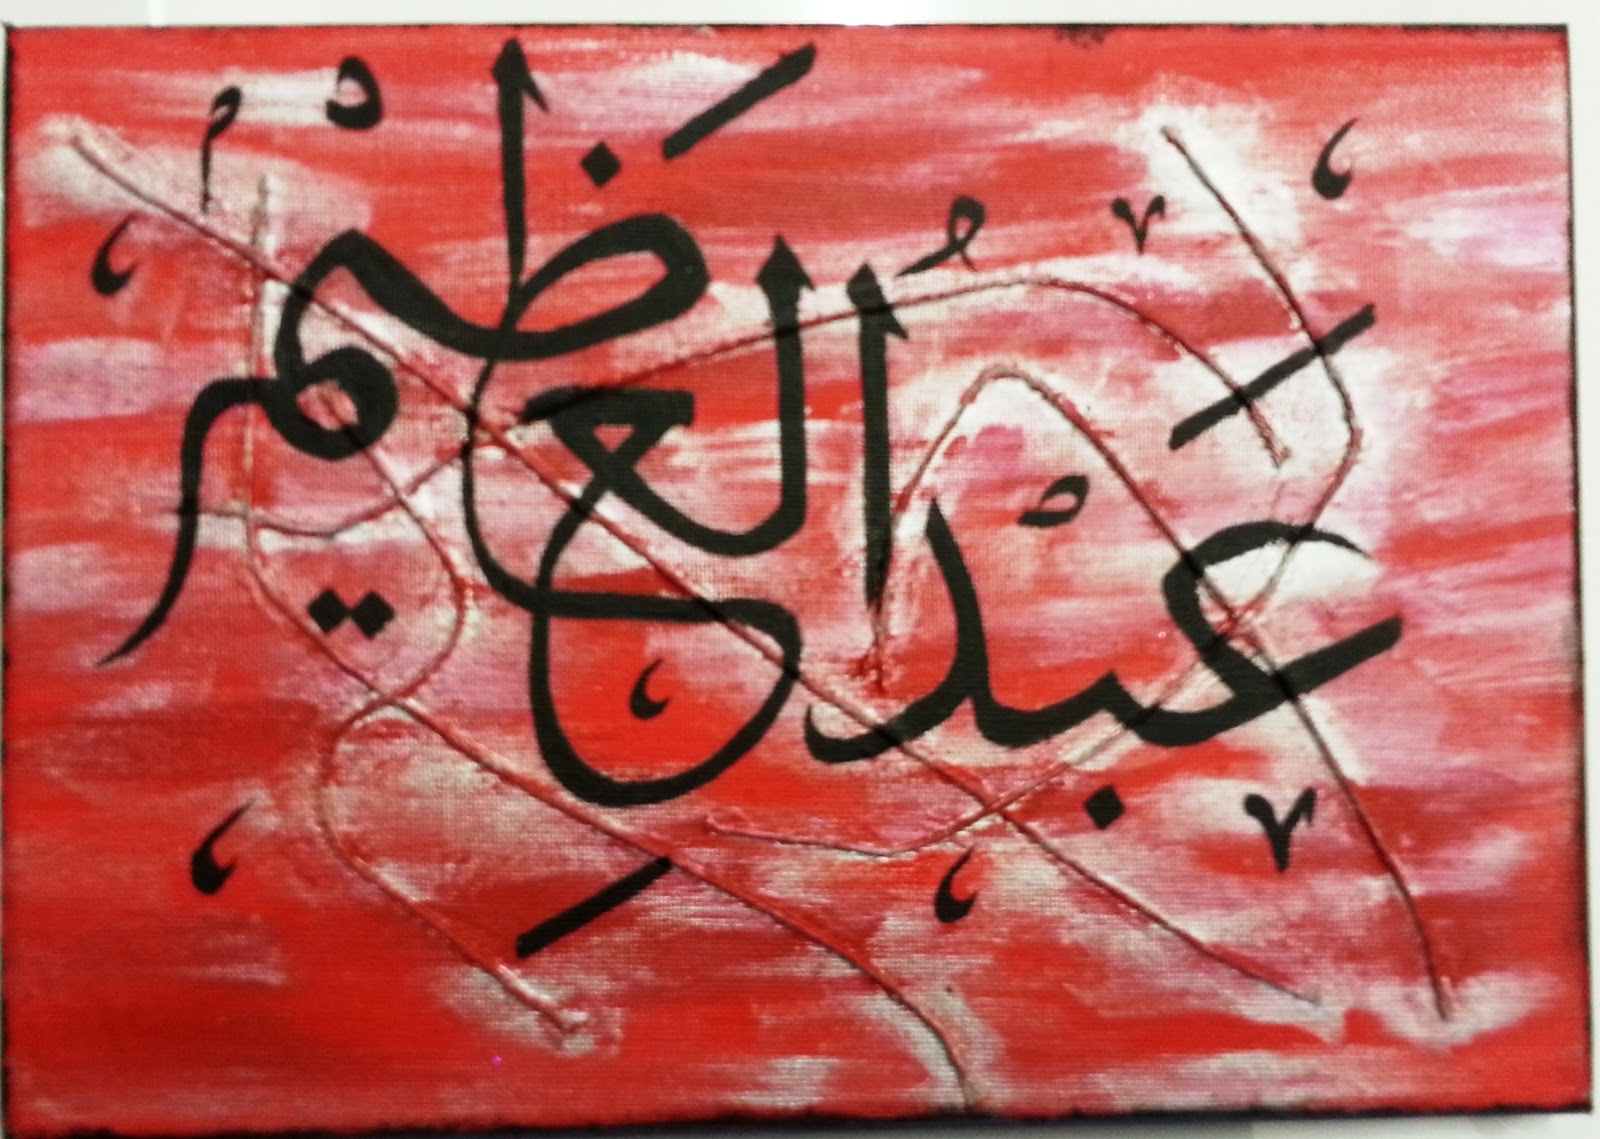 عَبْدُ العَظِيْم